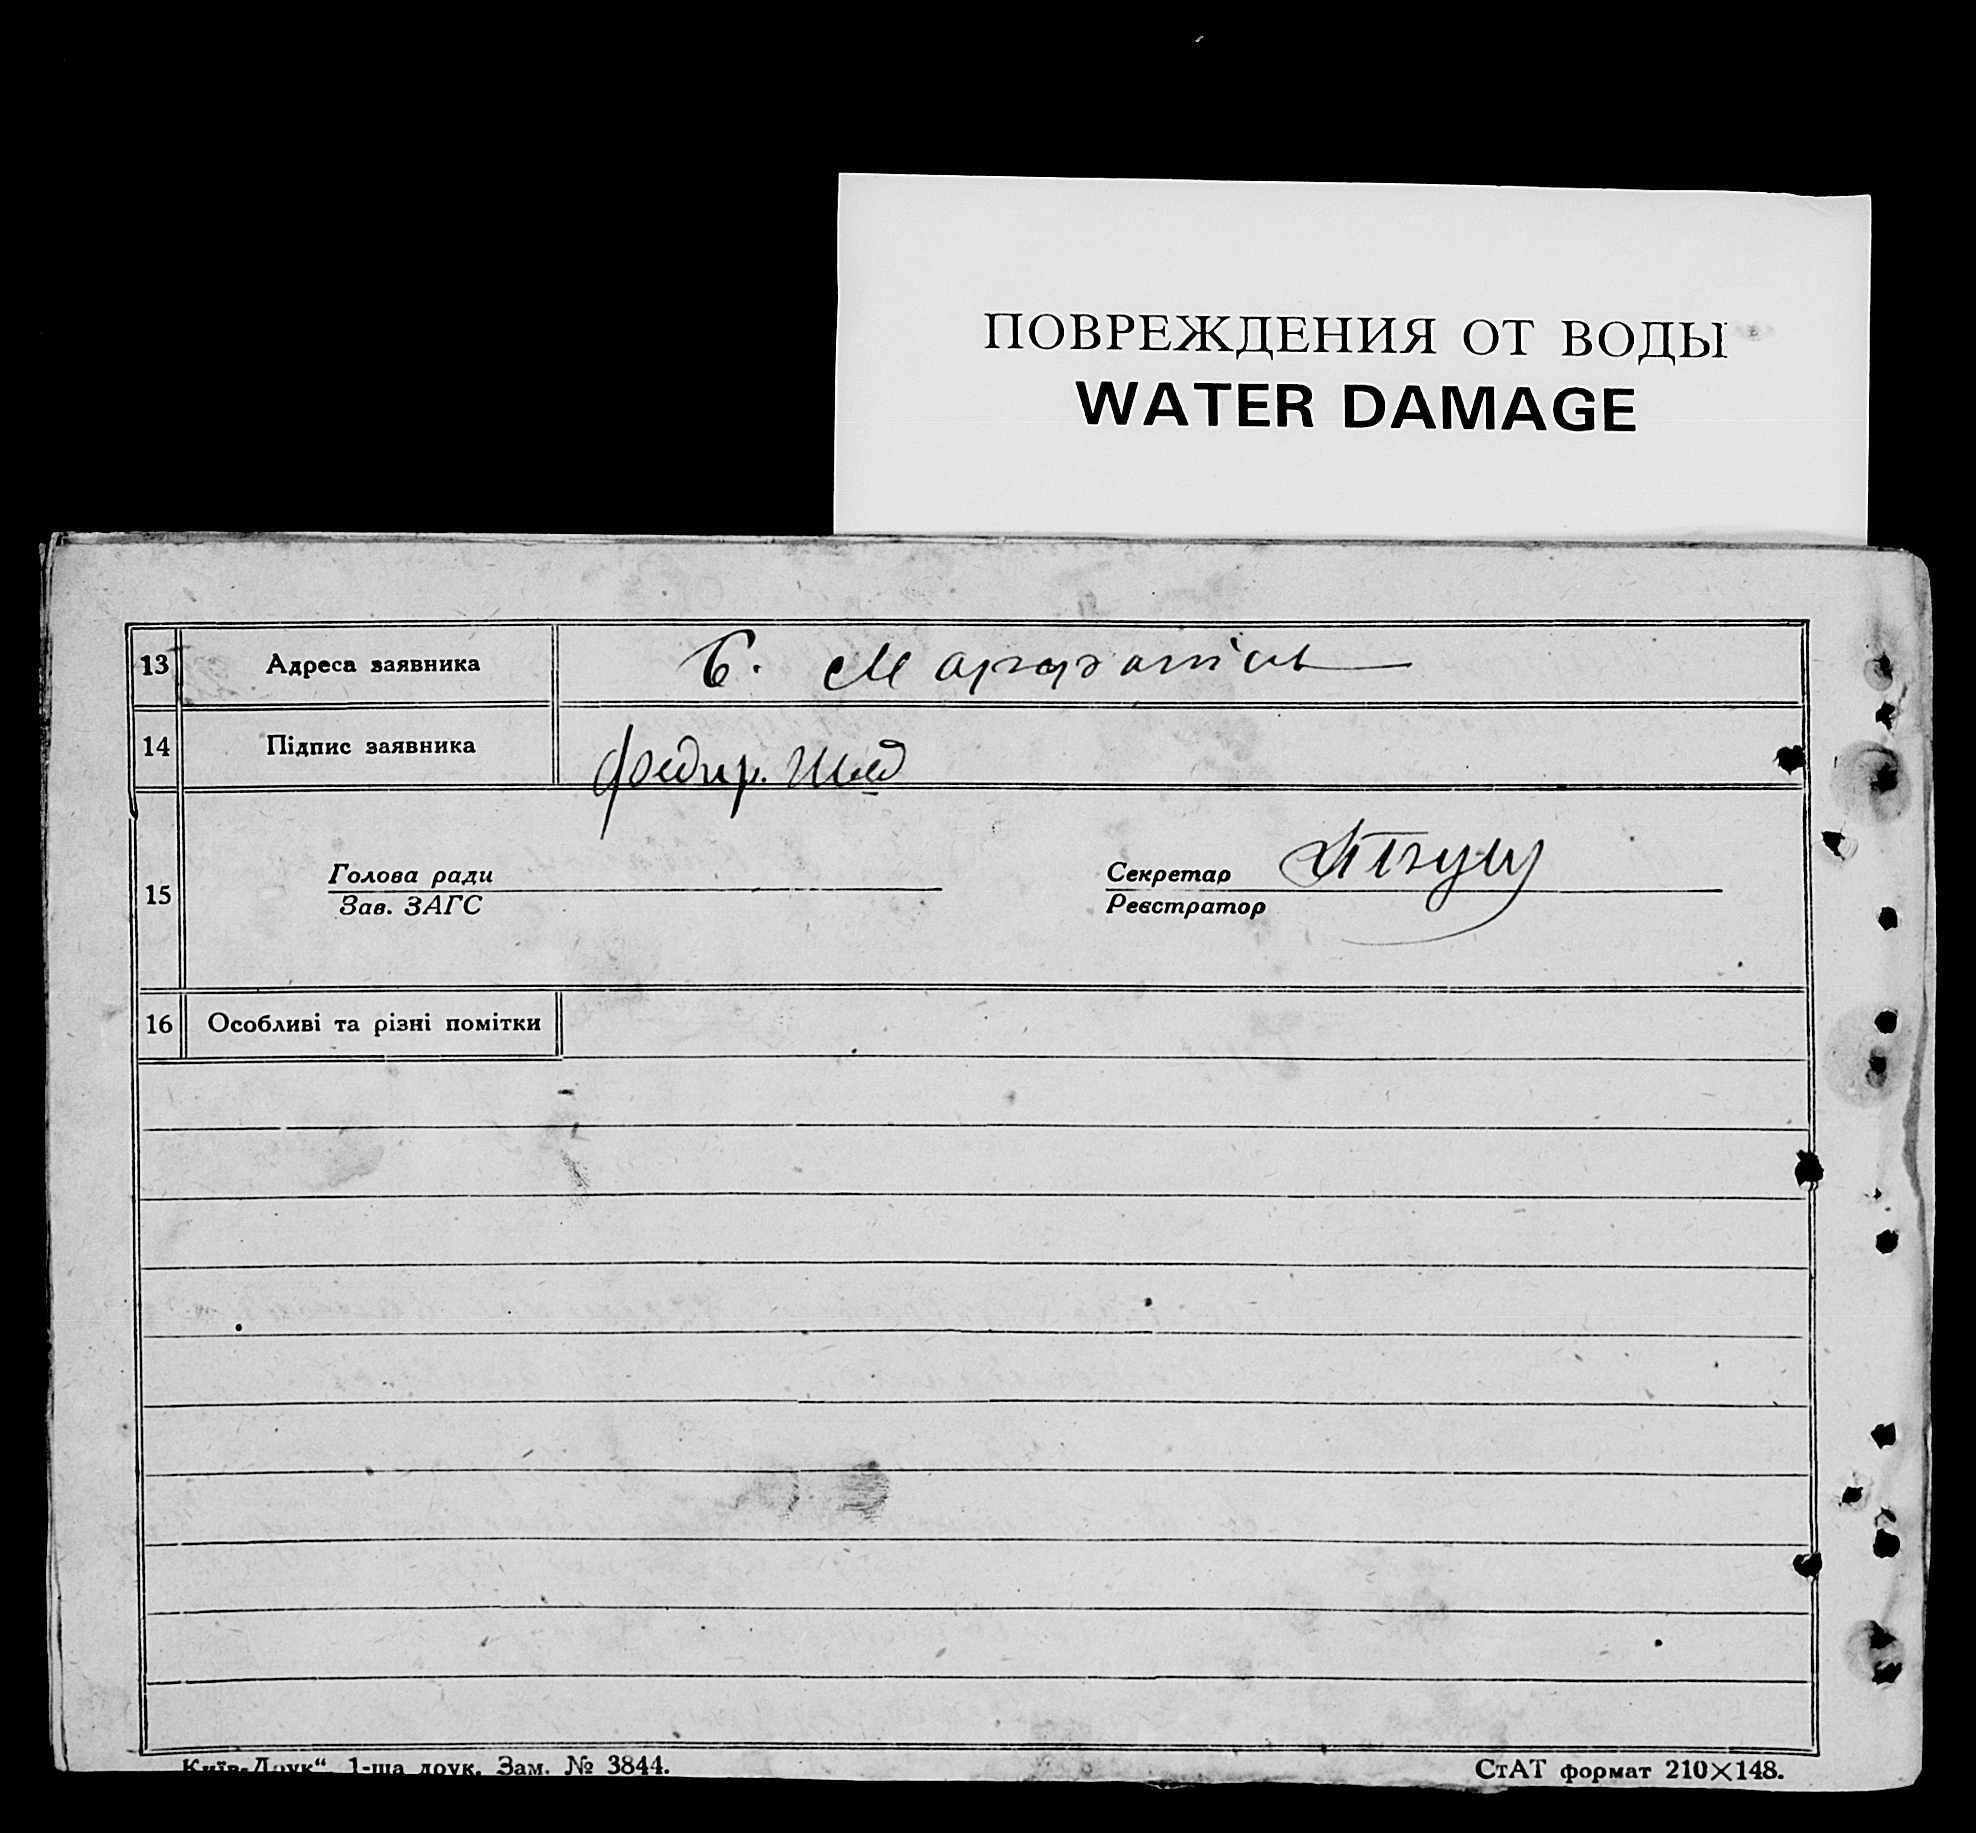 ПОВРЕЖДЕНИЯ ОТ ВОДЫ
WATER DAMAGE
13 Адреса заявника
14 Підпис заявника
15 Голова ради
Зав. ЗАГС
Секретар
Реєстратор
16 Особливі та різні помітки
Київ-Друк“ 1-ша друк. Зам. № 3844.
СтАТ формат 210×148.